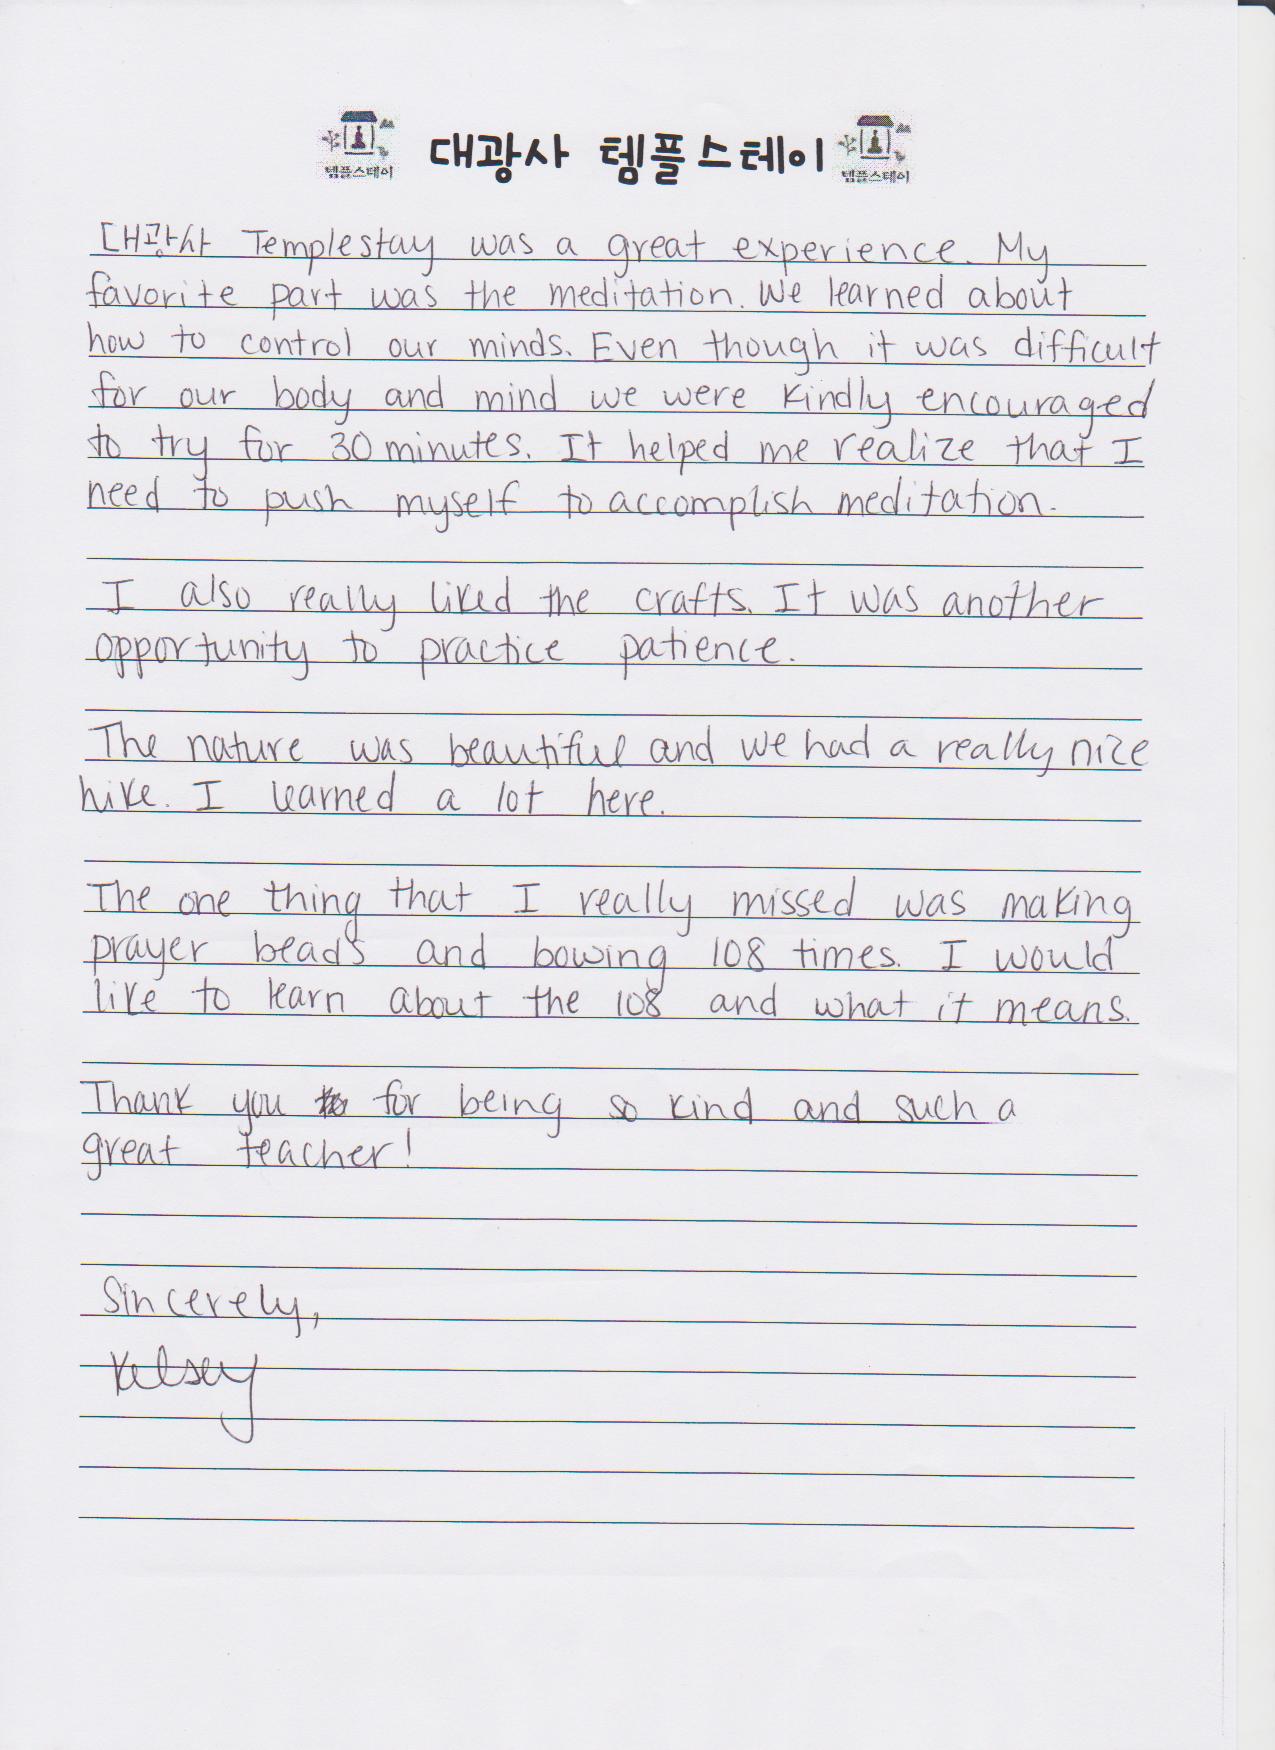 대광사 템플스테이
템플스테이
템플스테이
대광사 Templestay was a great experience. My
favorite part was the meditation. We learned about
how to control our minds. Even though it was difficult
for our body and mind we were kindly encouraged
to try for 30 minutes. It helped me realize that I
need to push myself to accomplish meditation.
I also really liked the crafts. It was another
opportunity to practice patience.
The nature was beautiful and we had a really nice
hike. I learned a lot here.
The one thing that I really missed was making
prayer beads and bowing 108 times. I would
like to learn about the 108 and what it means.
Thank you for being so kind and such a
great teacher!
Sincerely,
Kelsey